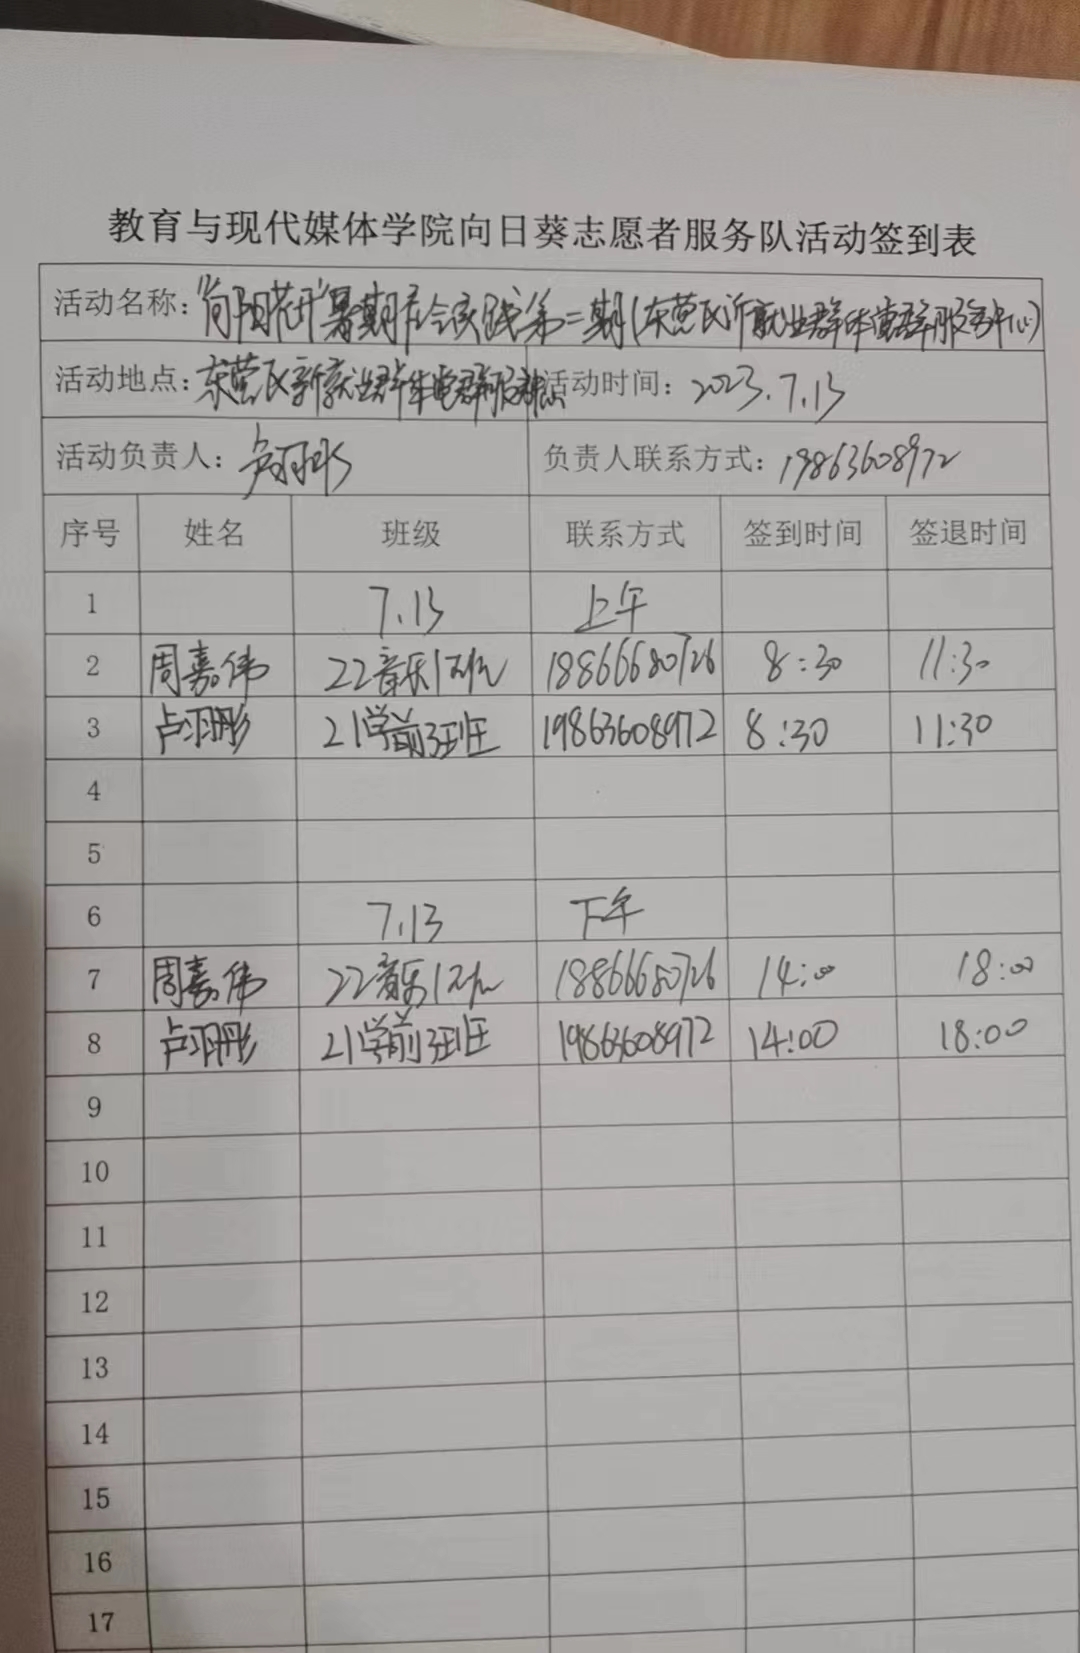 教育与现代媒体学院向日葵志愿者服务队活动签到表
活动名称：“向阳花开”暑期社会实践第二期（东营区新就业群体党群服务中心）
活动地点：东营区新就业群体党群服务中心 活动时间：2023.7.13
活动负责人：卢羽彤 负责人联系方式：19863608972
序号 姓名 班级 联系方式 签到时间 签退时间
1 7.13 上午
2 周嘉伟 22音乐1 18866680726 8:30 11:30
3 卢羽彤 21学前3班 19863608972 8:30 11:30
4
5
6 7.13 下午
7 周嘉伟 22音乐1 18866680726 14:00 18:00
8 卢羽彤 21学前3班 19863608972 14:00 18:00
9
10
11
12
13
14
15
16
17